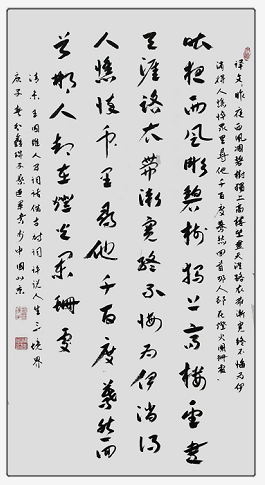 译文：昨夜西风凋碧树独上高楼望尽天涯路衣带渐宽终不悔为伊
消得人憔悴众里寻他千百度蓦然回首那人却在灯火阑珊处
昨夜西风凋碧树独上高楼望尽
天涯路衣带渐宽终不悔为伊消得
人憔悴众里寻他千百度蓦然回
首那人却在灯火阑珊处
王国维人间词话借古时词评说人生三境界
庚子